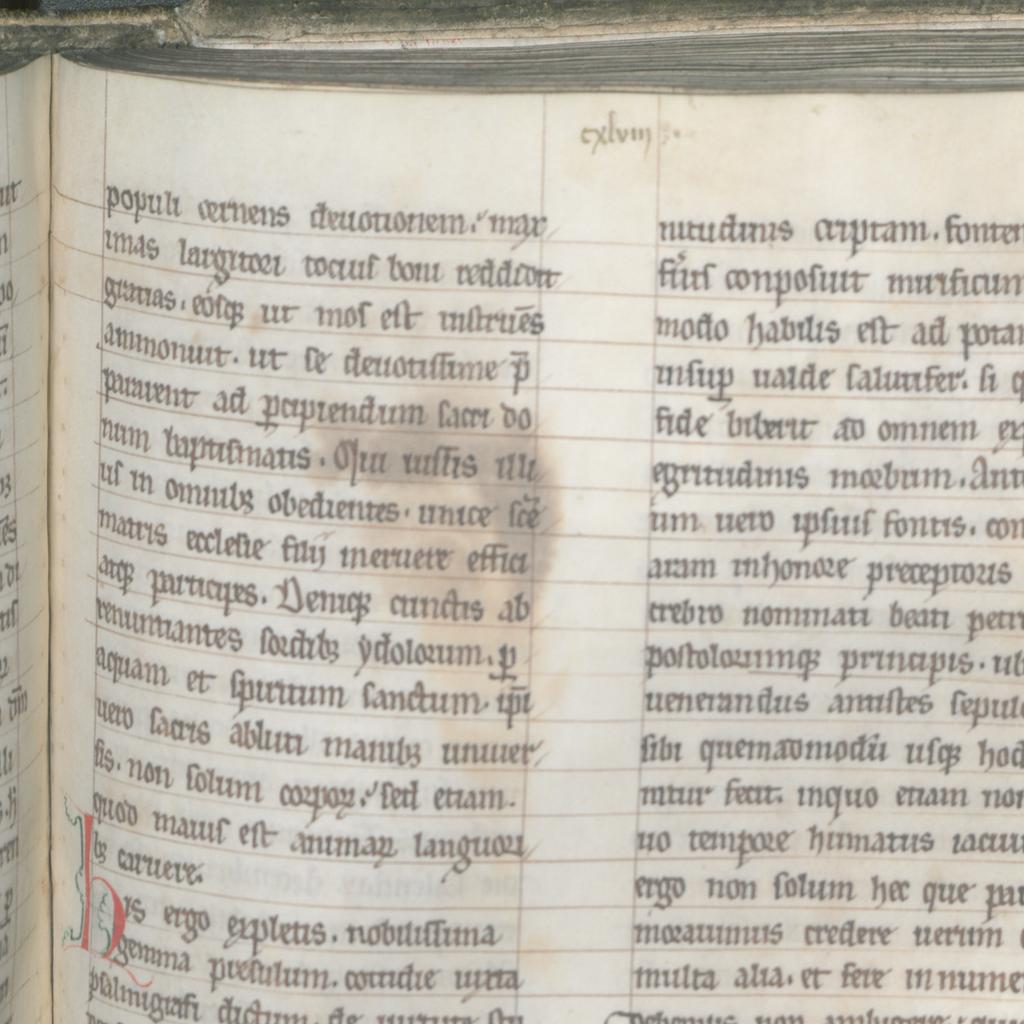 cxlviii
populi cernens deuotionem. max
imas largitori totius boni reddidit
gratias. eosq; ut mos est instruēs
ammonuit. ut se deuotissime p̄
pararent ad ꝑcipiendum sacri do
num baptismatis. Qui iussis illi
us in omnibꝫ obedientes. unice scē
matris ecclesie filij meruere effici
atqꝫ participes. Deniqꝫ cunctis ab
renuntiantes sordibꝫ ydolorum. ꝑ
aquam et spiritum sanctum. ip̄i
uero sacris abluti manibꝫ uniuer
sis. non solum corpoꝝ. sed etiam.
quod maius est animaꝝ languori
bꝫ caruere.
His ergo expletis. nobilissima
gemma presulum. cottidie iuxta
psalmigrafi dictum. de uirtute
nitudinis criptam. fonte
conposuit mirificum
modo habilis est ad pota
insuꝑ ualde salutifer. si q
fide biberit ad omnem
egritudinis morbum. Ant
um uero ipsius fontis. con
aram inhonore preceptoris
crebro nominati beati petri
postolorumqꝫ principis. ub
uenerandus antistes sepul
sibi quemadmodū usqꝫ hod
nitur fecit. inquo etiam non
uo tempore humatus iacuit
ergo non solum hec que
morauimus credere uerum
multa alia. et fere innume
Debemus non